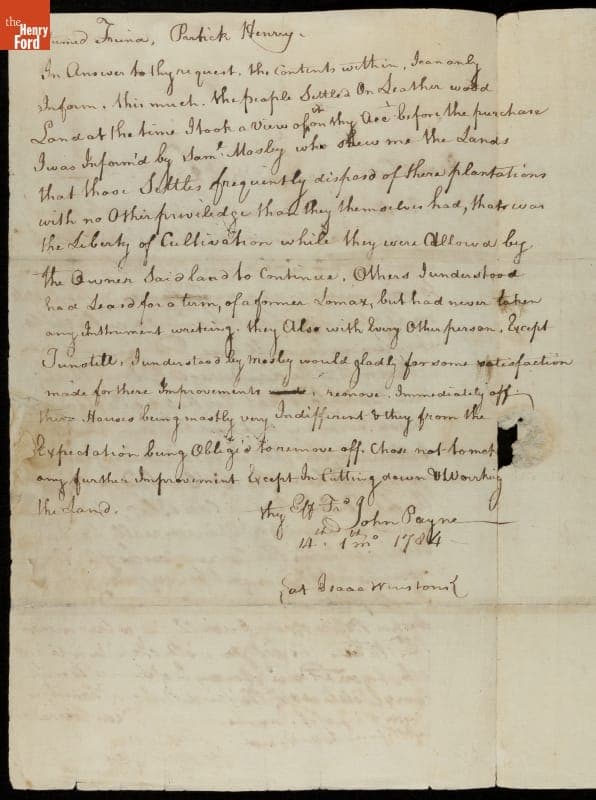 the
Henry
Ford
Friend, Partick Henry.
In Answer to thy request, the Contents within, I can only
Inform, this much. the people Settled On Leather wood
Land at the time I took a View of it on thy Acct before the purchase
I was Inform'd by Saml Mosby who shew me the Lands
that those Settles frequently disposd of there plantations
with no Other priviledge than they themselves had, thats was
the Liberty of Cultivation while they were Allowd by
the Owner Said land to Continue, Others I understood
had Leasd for a term, of a former Lomax, but had never taken
any Instrument wreting. they Also with Every Other person, Except
Tunstill, I understood by Mosby would gladly for some satisfaction
made for there Improvements remove Immediately off
there Houses being mostly very Indiffirint & they from the
Expectation being Oblige'd to remove off. Chose not to make
any further Improvement Except In Cutting down & Working
the Land.
thy Eff Frd John Payne
4th 1st mo 1784
at Isaac Winstons